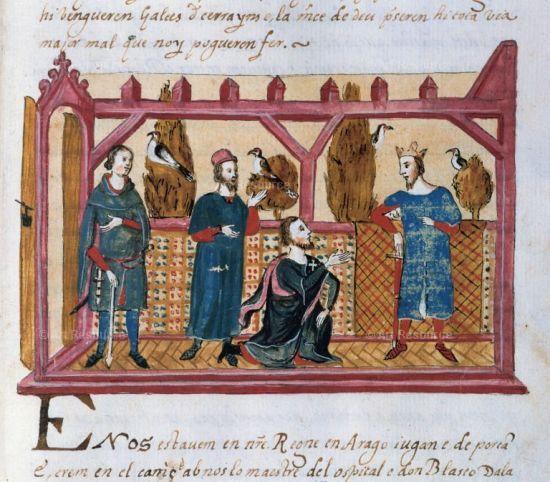 hi vingueren Galees d̃ serrayns e, la mce de deu p̃seren hi tota via
major mal que no y pogueren fer.
ENOS estavem en nr̃e Regne en Arago jugan e, de porta
E, erem en el camj̃ ab nos lo maestre del ospital e don Blasco Dala